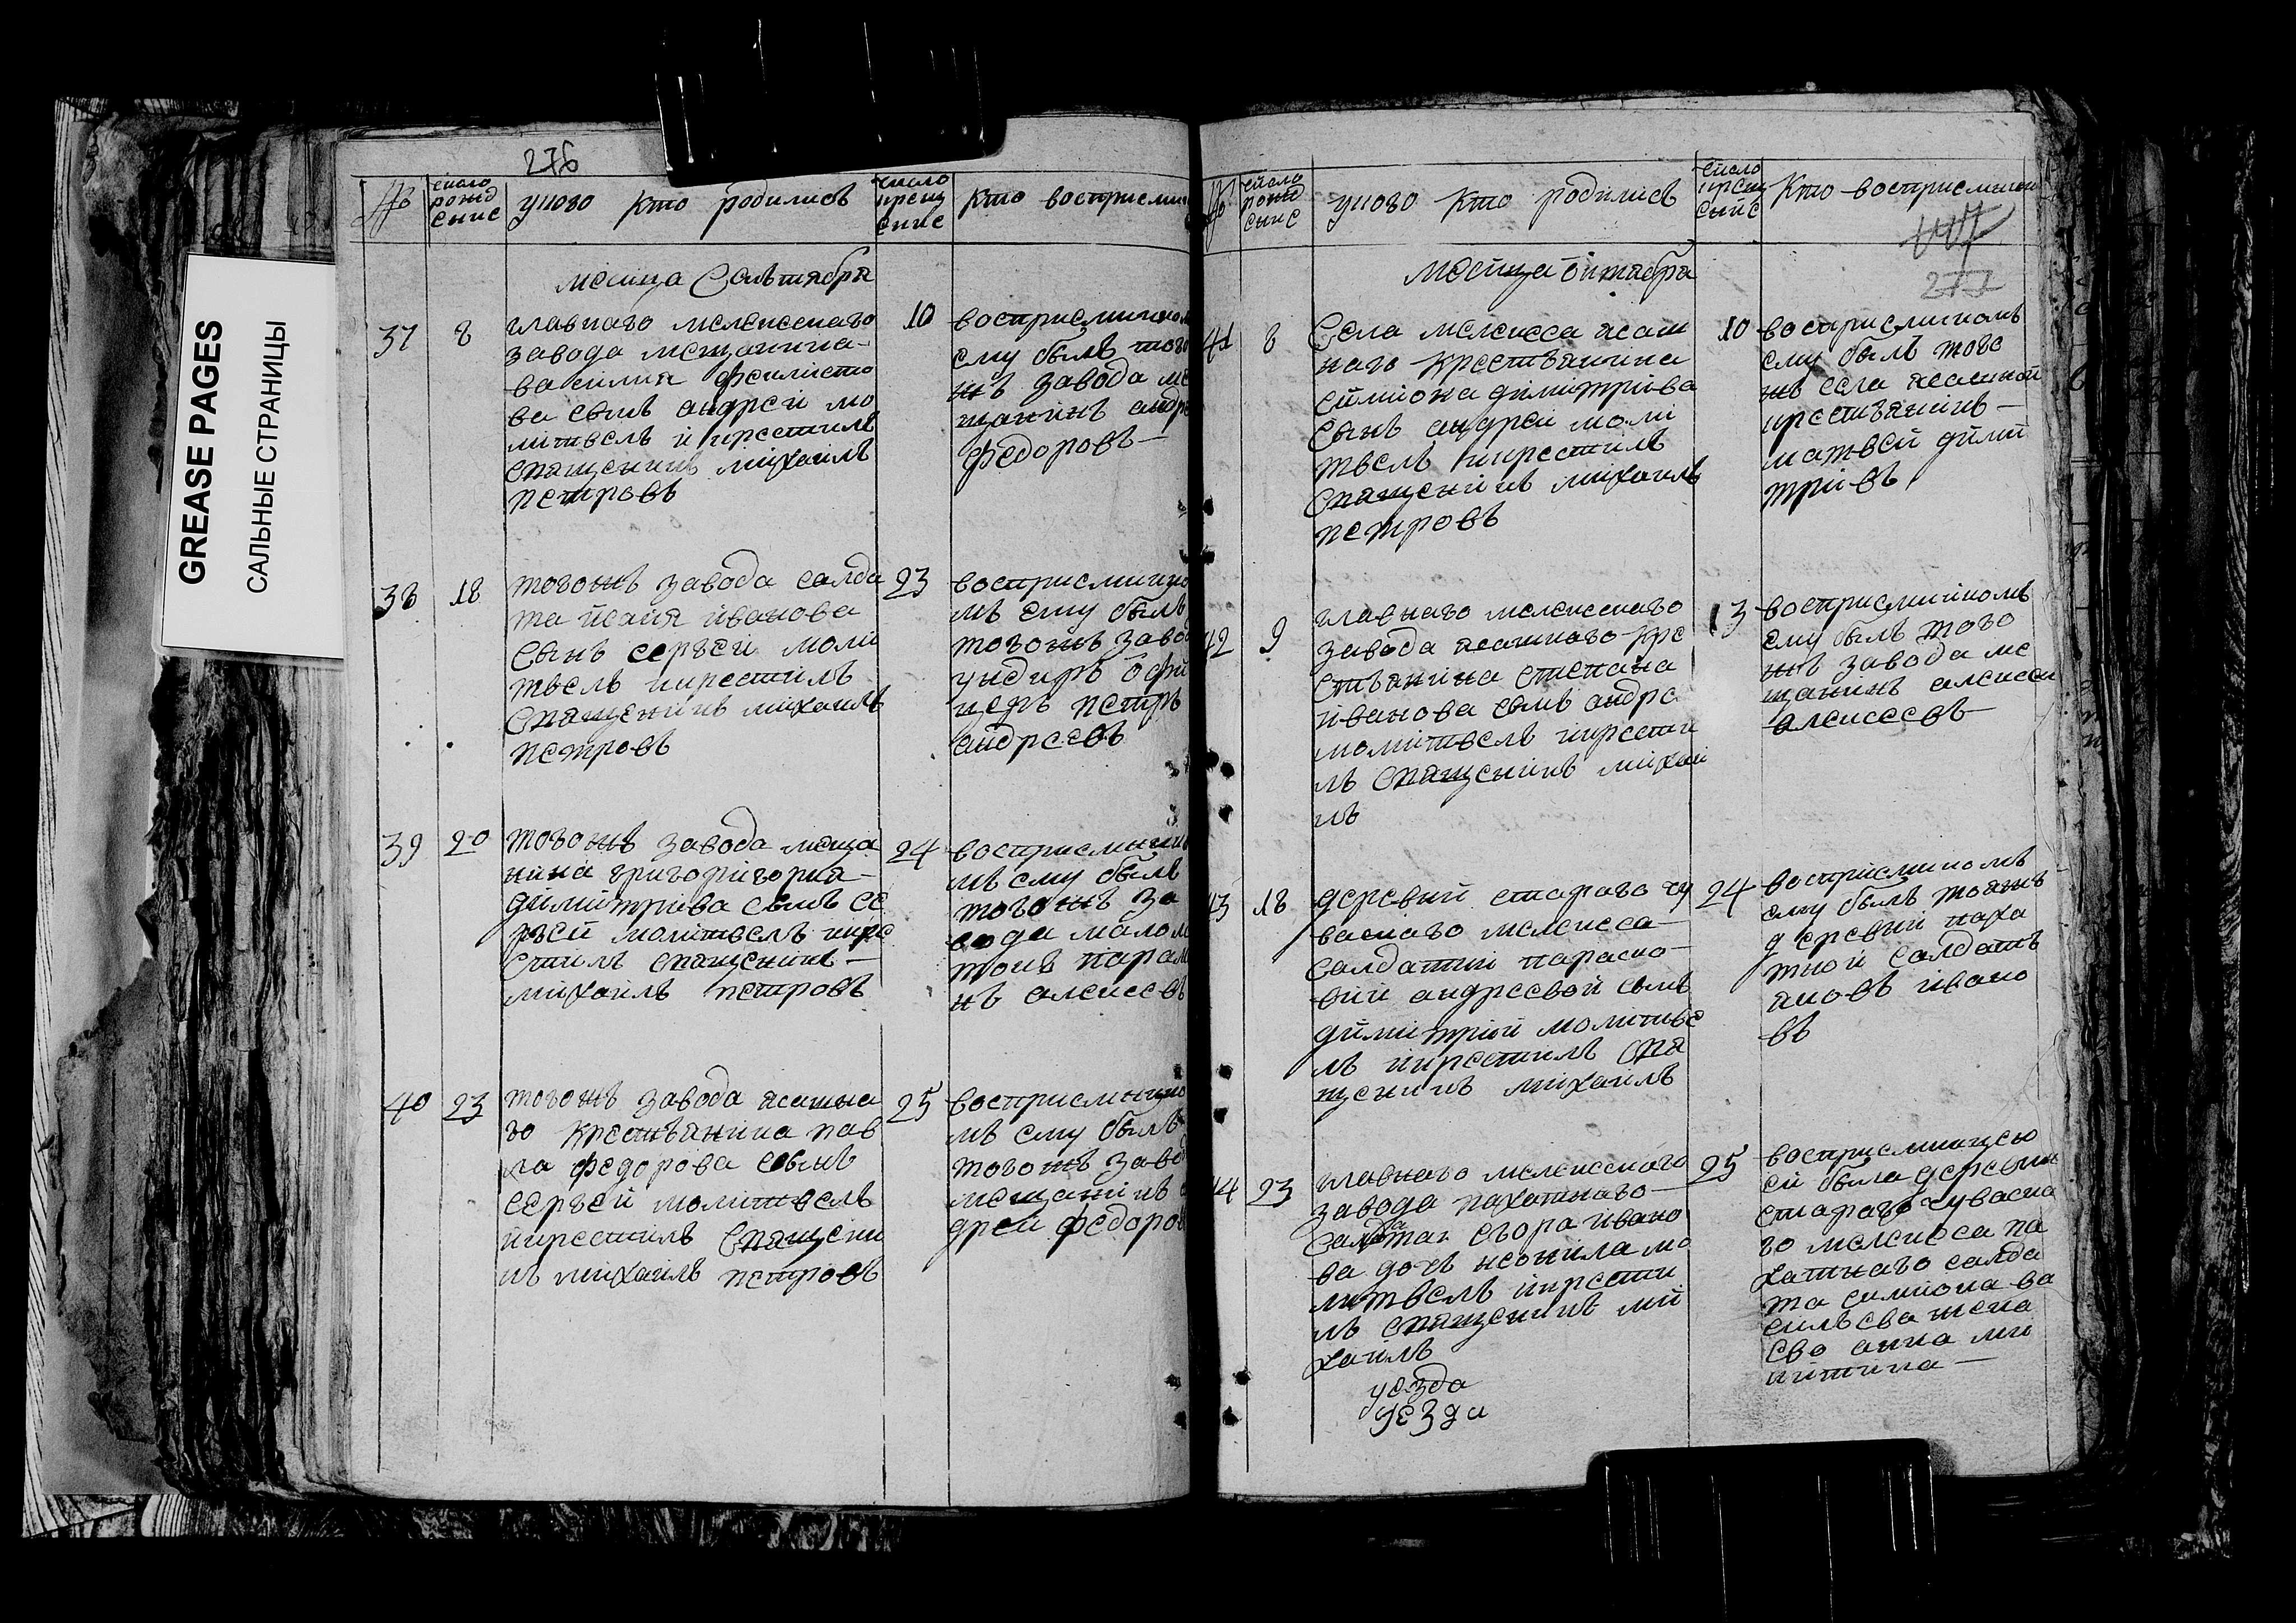 GREASE PAGES
САЛЬНЫЕ СТРАНИЦЫ
276
№
число рожд ение
у ково кто родились
число крещ ение
кто восприемни
месяца Сентября
37
8
главнаго мелекесскаго
завода мещанина
василия феклисто
ва сынъ андреи мо
литвелъ и крестилъ
священникъ михаилъ
петровъ
10
восприемником
ему былъ того
жъ завода ме
щанинъ андре
федоровъ
38
18
тогожъ завода салда
та исаия иванова
сынъ сергеи моли
твелъ икрестилъ
священникъ михаилъ
петровъ
23
восприемнико
мъ ему былъ
тогожъ завод
ундиръ офи
церъ петръ
андреевъ
39
20
тогожъ завода меща
нина григоригория
димитрива сынъ се
ргеи молитвелъ икре
стилъ священникъ
михаилъ петровъ
24
восприемник
мъ ему былъ
тогожъ за
вода
алексеевъ
40
23
тогожъ завода ясашна
го крестьянина пав
ла федорова сынъ
сергеи молитвелъ
икрестилъ священи
къ михаилъ петровъ
25
восприемнико
мъ ему былъ
тогожъ заво
мещанинъ
дреи федоров
№
число рожд ение
у ково кто родились
число крещ ение
кто восприемники
277
месяца октября
41
8
Села мелекеса ясаш
наго крестьянина
симиона димитрива
сынъ андреи моли
твелъ икрестилъ
священникъ михаилъ
петровъ
10
восприемникомъ
ему былъ того
жъ села ясашной
крестьянинъ
матвей дими
тривъ
42
9
главнаго мелекескаго
завода ясашнаго кре
стьянина степана
иванова сынъ андре
молитвелъ икрести
лъ священникъ михаи
лъ
13
восприемникомъ
ему былъ того
жъ завода ме
щанинъ алексеи
алексеевъ
43
18
деревни стараго чу
васкаго мелекеса
салдатки параско
вии андреевой сынъ
димитрий молитве
лъ икрестилъ свя
щенникъ михаилъ
24
восприемникомъ
ему былъ тояжъ
деревни паха
тной салдатъ
яковъ ивано
въ
44
23
главнаго мелекескаго
завода пахатнаго
салдата егора ивано
ва дочъ неонила мо
литвелъ икрести
лъ священникъ ми
хаилъ
уезда
уезда
25
восприемницею
ей была деревни
стараго чуваска
го мелекеса па
хатнаго салда
та симиона ва
сильева жена
ево анна ми
китина